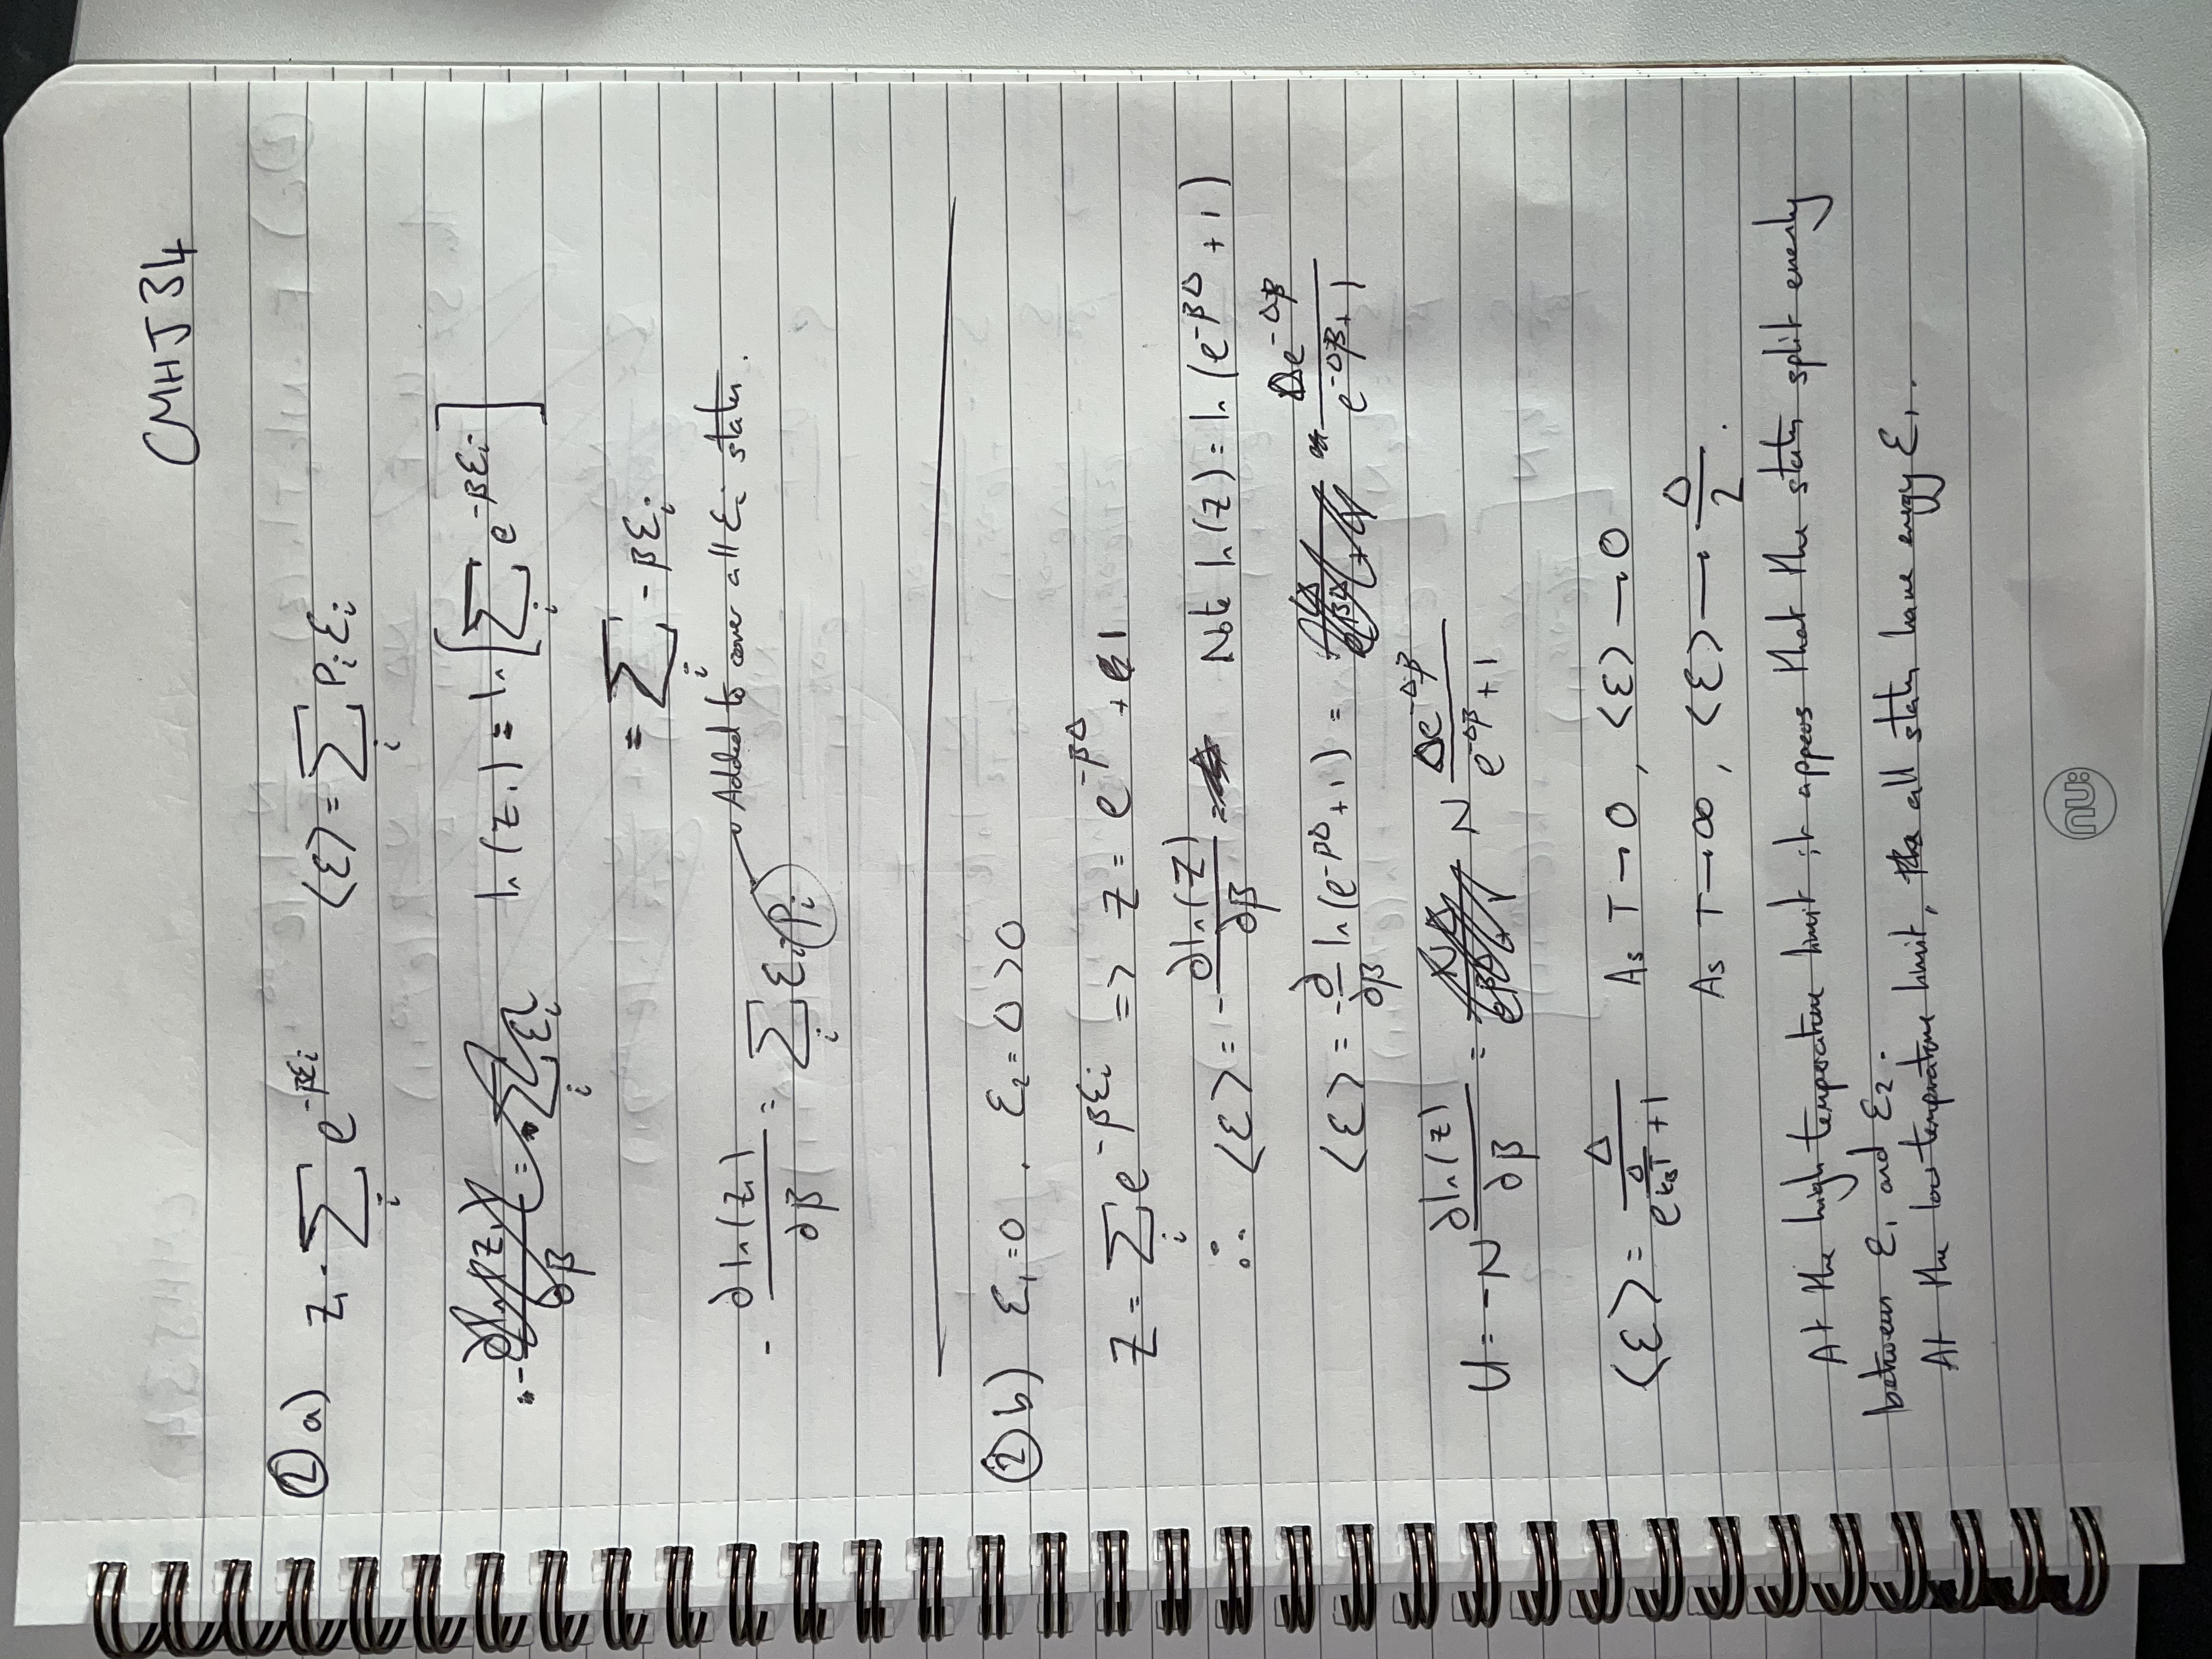 CMHJ34
② a) Z₁ = ∑ᵢ e^(-βεᵢ) ⟨ε⟩ = ∑ᵢ Pᵢ εᵢ
ln(Z₁) = ln[∑ᵢ e^(-βεᵢ)]
= ∑ᵢ -βεᵢ
- ∂ln(Z₁)/∂β = ∑ᵢ εᵢ Pᵢ Added to cover all εᵢ states.
② b) ε₁ = 0 . ε₂ = Δ > 0
Z = ∑ᵢ e^(-βεᵢ) => Z = e^(-βΔ) + 1
∴ ⟨ε⟩ = - ∂ln(Z)/∂β Note ln(Z) = ln(e^(-βΔ) + 1)
⟨ε⟩ = - ∂/∂β ln(e^(-βΔ) + 1) = Δe^(-Δβ)/(e^(-Δβ) + 1)
U = -N ∂ln(Z)/∂β = N Δe^(-Δβ)/(e^(-Δβ) + 1)
⟨ε⟩ = Δ/(e^(Δ/k_BT) + 1) As T → 0, ⟨ε⟩ → 0
As T → ∞, ⟨ε⟩ → Δ/2.
At the high temperature limit it appears that the states split evenly
between ε₁ and ε₂.
At the low temperature limit, all states have energy ε₁.
nu: